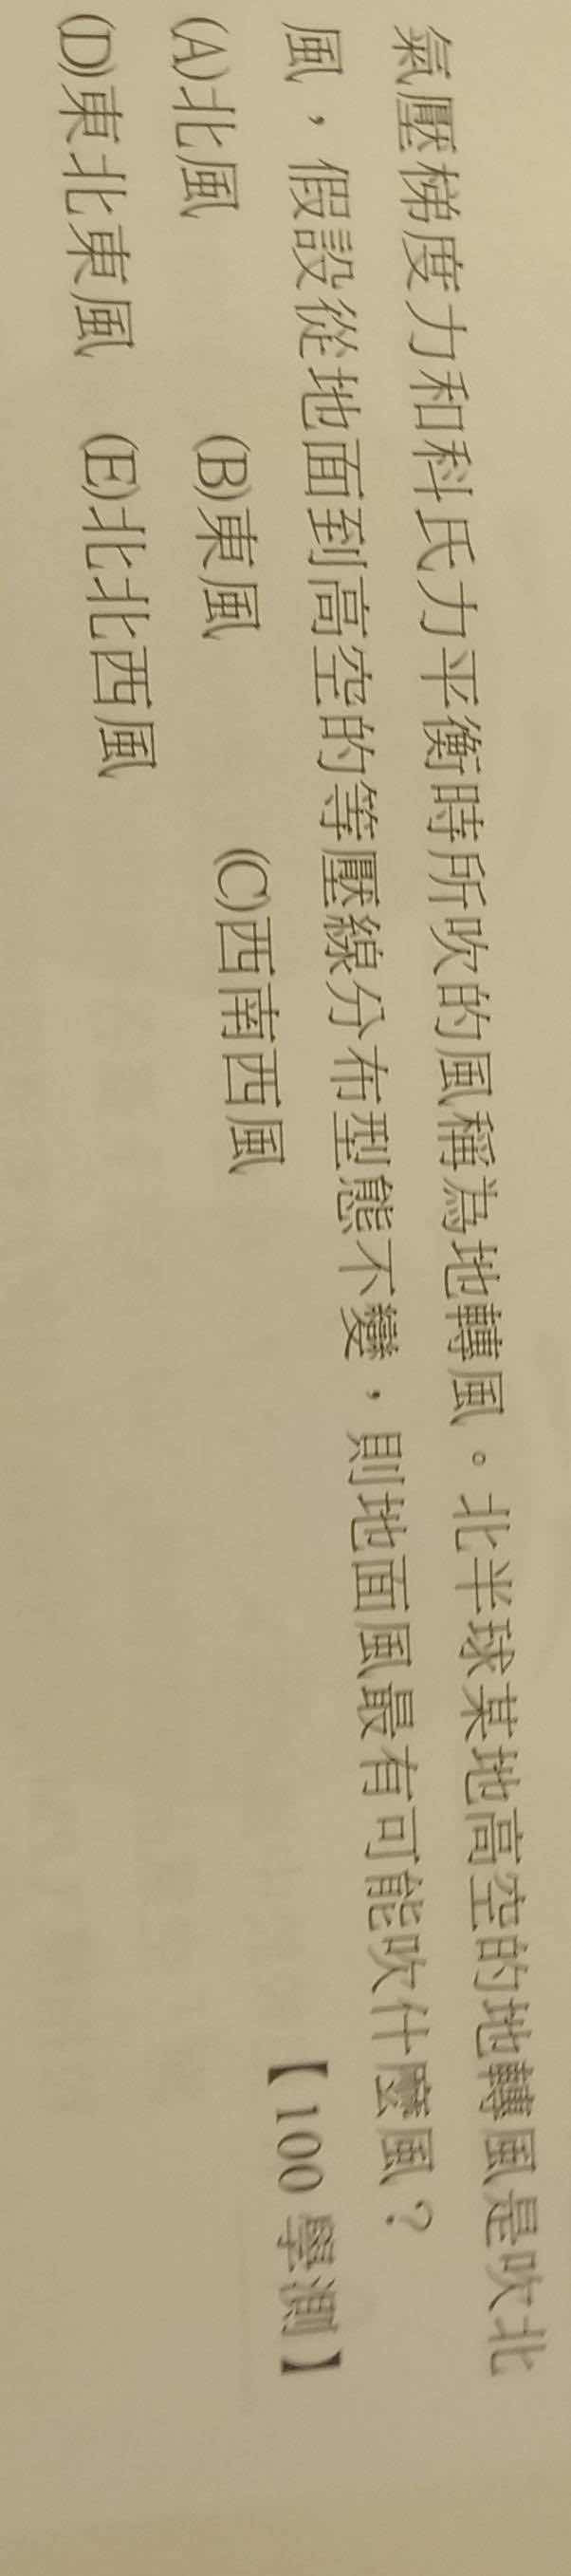 氣壓梯度力和科氏力平衡時所吹的風稱為地轉風。北半球某地高空的地轉風是吹北
風，假設從地面到高空的等壓線分布型態不變，則地面風最有可能吹什麼風？
【100 學測】
(A)北風 (B)東風 (C)西南西風
(D)東北東風 (E)北北西風